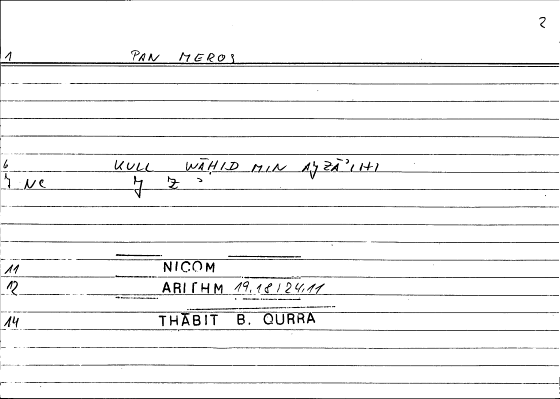 2
1 PAN MEROS
6 KULL WĀḤID MIN AǧZĀʾIHI
7 NC ǧ Z ʾ
11 NICOM
12 ARITHM 19,18 / 24,11
14 THĀBIT B. QURRA